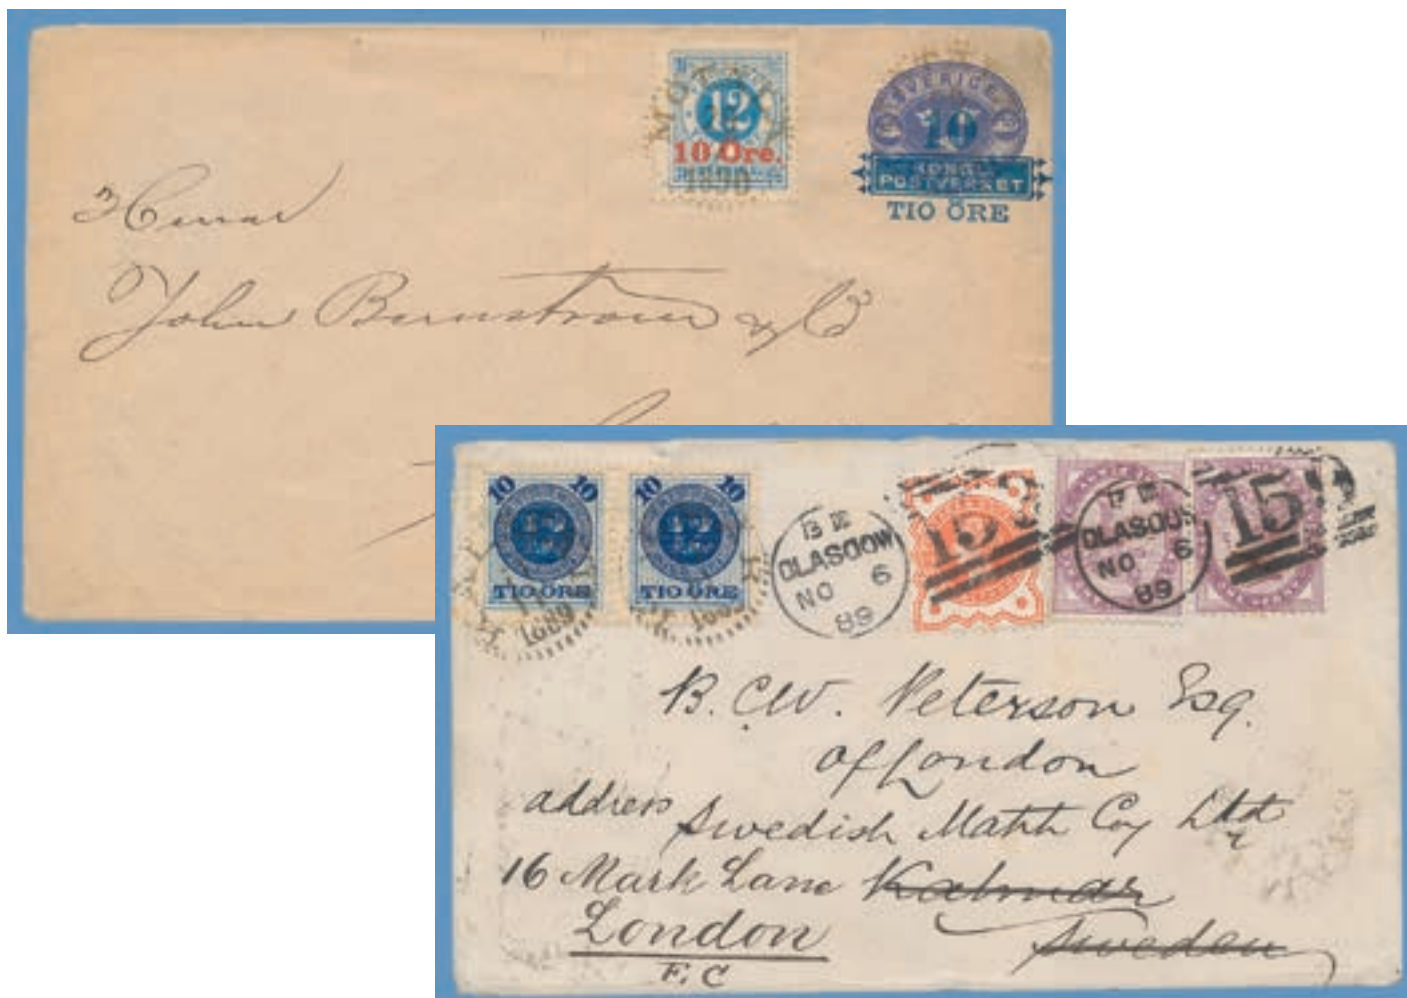 SVERIGE
10
KONGL.
POSTVERKET
TIO ÖRE
12
10 Öre.
1890
Herrar
John Bernström & Co
10 10
TIO ÖRE
1889
10 10
TIO ÖRE
GLASGOW
NO 6
89
159
GLASGOW
NO 6
89
159
B. C.W. Peterson Esq.
of London
address Swedish Match Coy Ltd
16 Mark Lane Kalmar
London Sweden
E.C